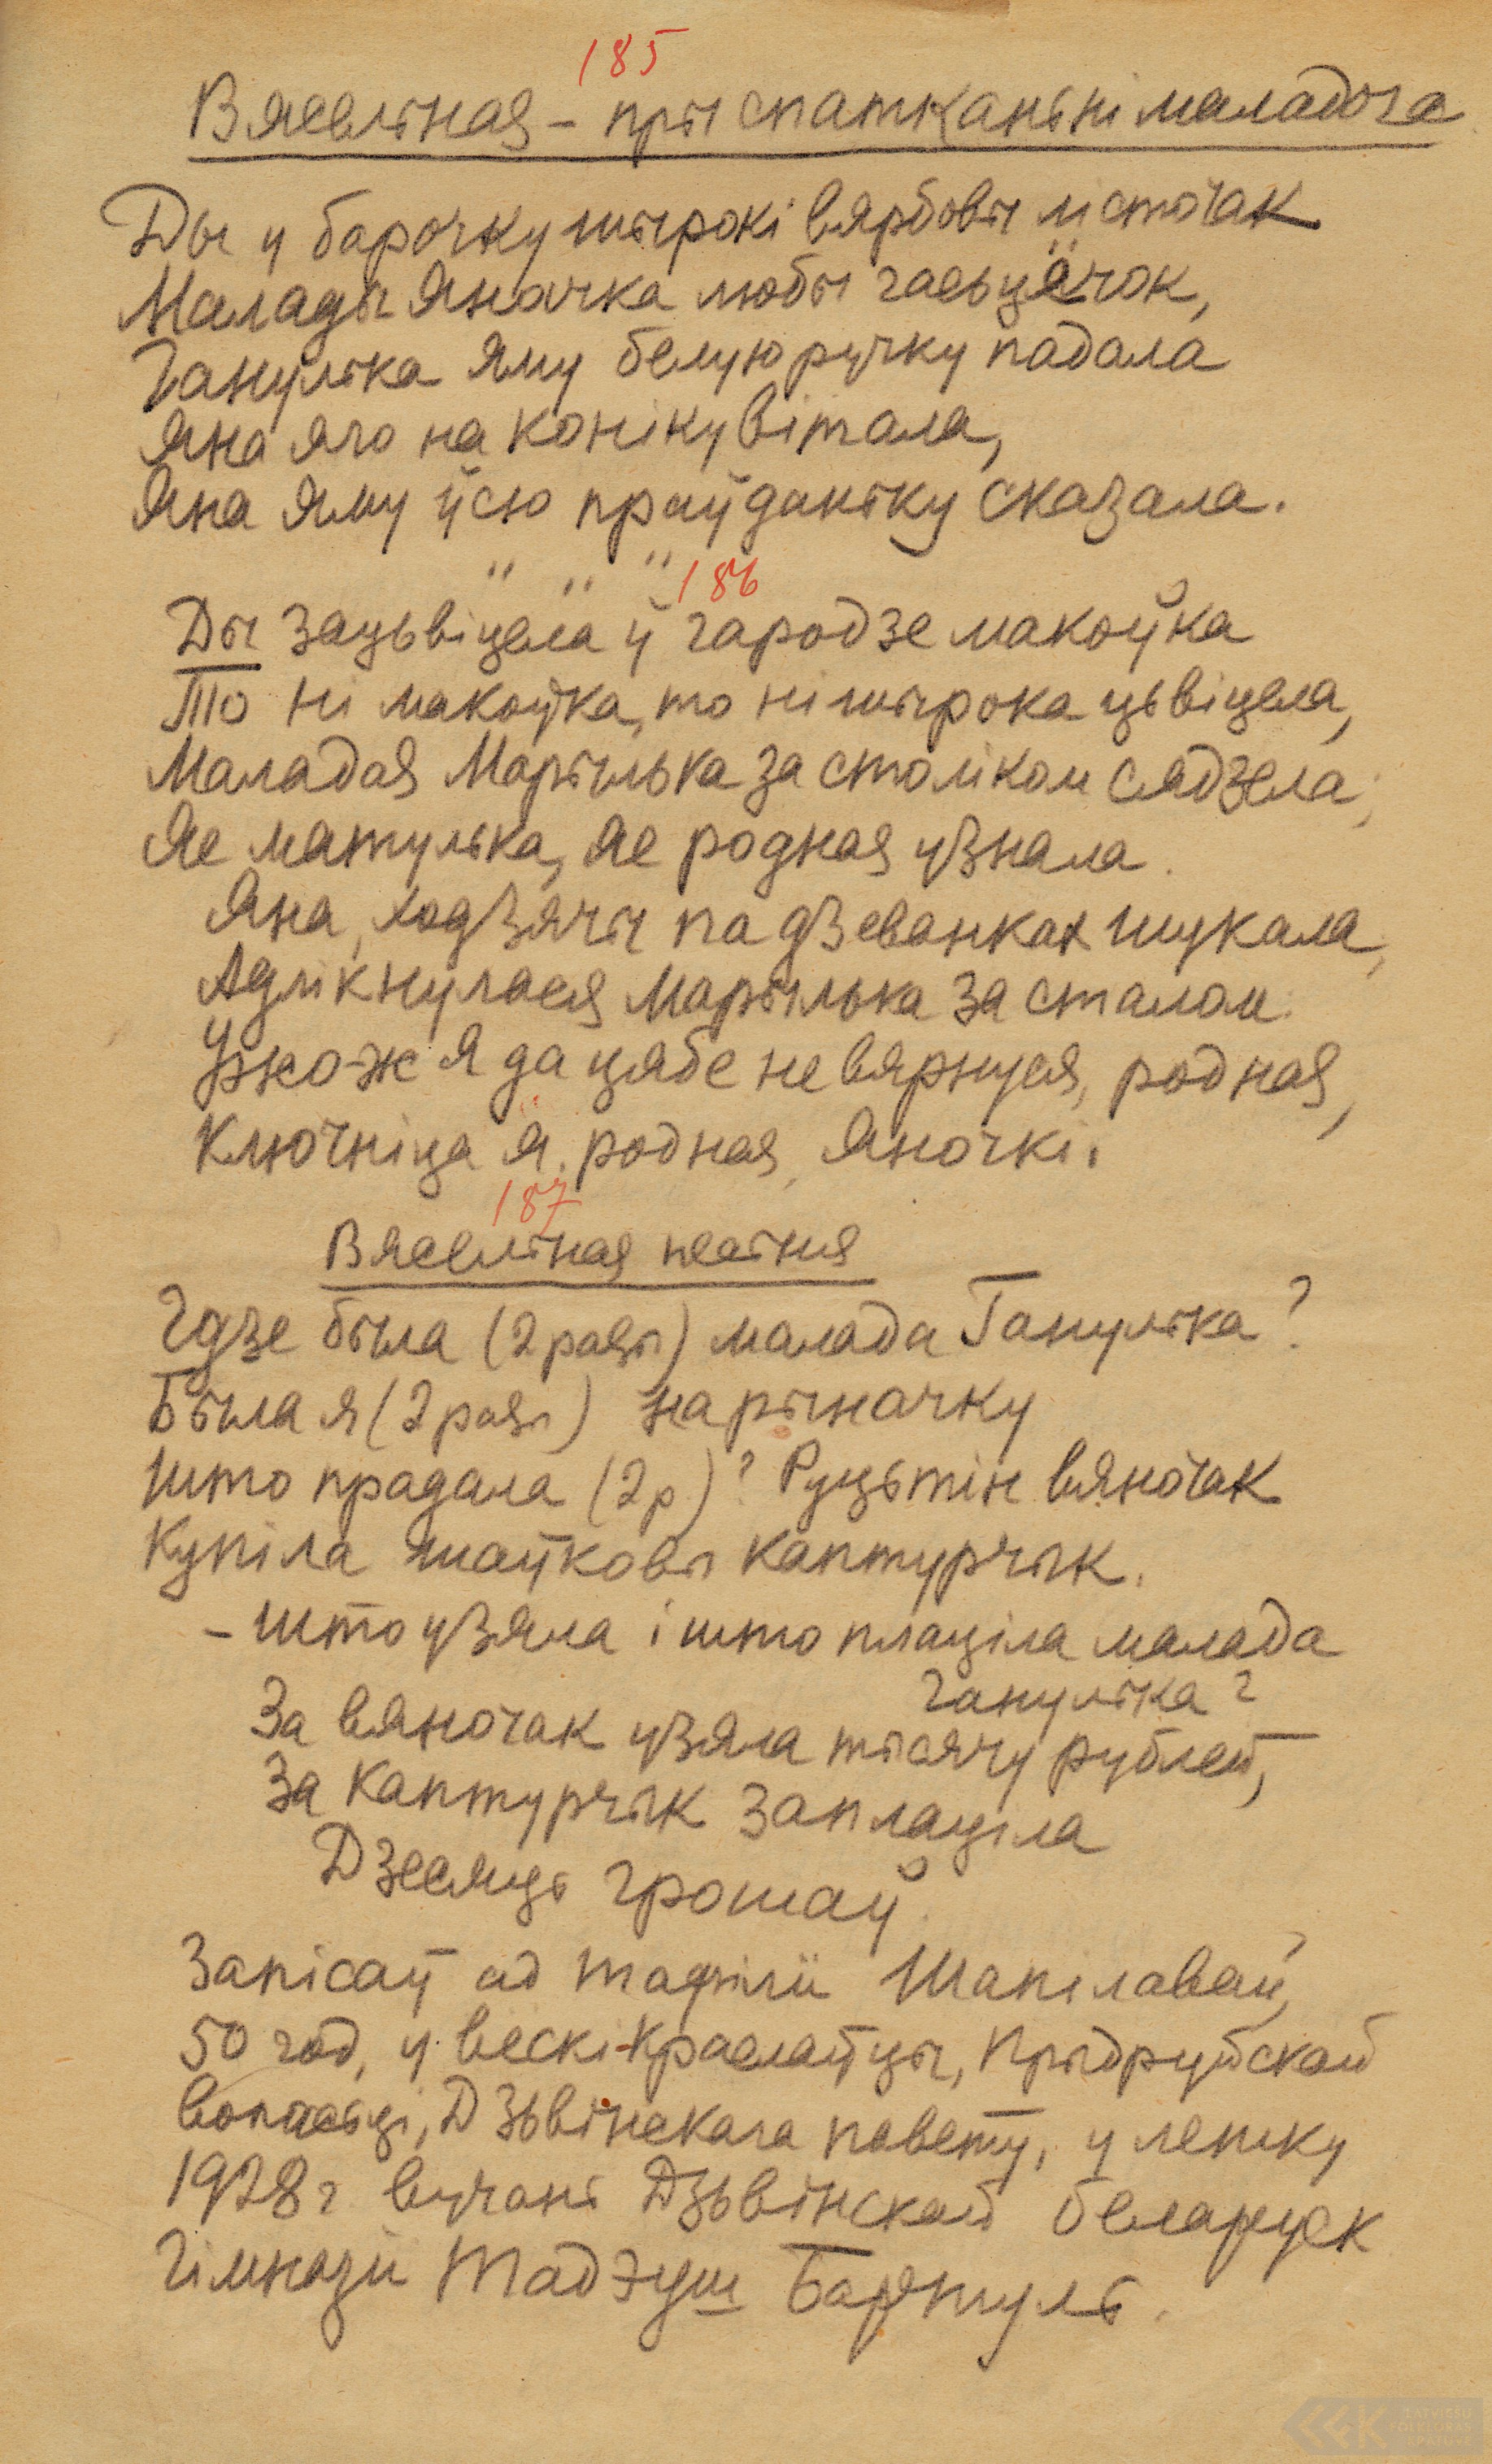 185
Вясельная – пры спатканьні маладога
Ды у барочку шырокі вярбовы лісточак
Малады Яначка любы гасьцёчок,
Ганулька яму белую ручку падала
Яна яго на коніку вітала,
Яна яму ўсю праўданьку сказала.
" " "
186
Ды зацьвіцела ў гародзе макоўка
То ні макоўка, то ні шырока цьвіцела,
Маладая Марылька за століком сядзела;
Яе матулька, яе родная узнала.
Яна, ходзячы па дзеванках шукала,
Адлікнулася Марылька за сталом.
Ужо-ж я да цябе не вярнуся, родная,
Ключніца я, родная, Яночкі.
187
Вясельная песьня
Гдзе была (2 разы) малада Ганулька?
Была я (2 разы) на рыначку
Што прадала (2 р.)? Руцьтін вяночак
Купіла шаўковы каптурчык.
– Што узяла і што плаціла малада
Ганулька?
За вяночак узяла тысячу рублей,
За каптурчык заплаціла
Дзесяць грошаў.
Запісаў ад Тафілі Шапілавай,
50 год, у вескі Краслаўцы, Прыдруйскай
воласьці, Дзьвінскага павету, у летку
1928 г. вучань Дзьвінскай беларуск
гімназіі Тадэуш Бартуль.
LATVIEŠU
FOLKLORAS
KRĀTUVE